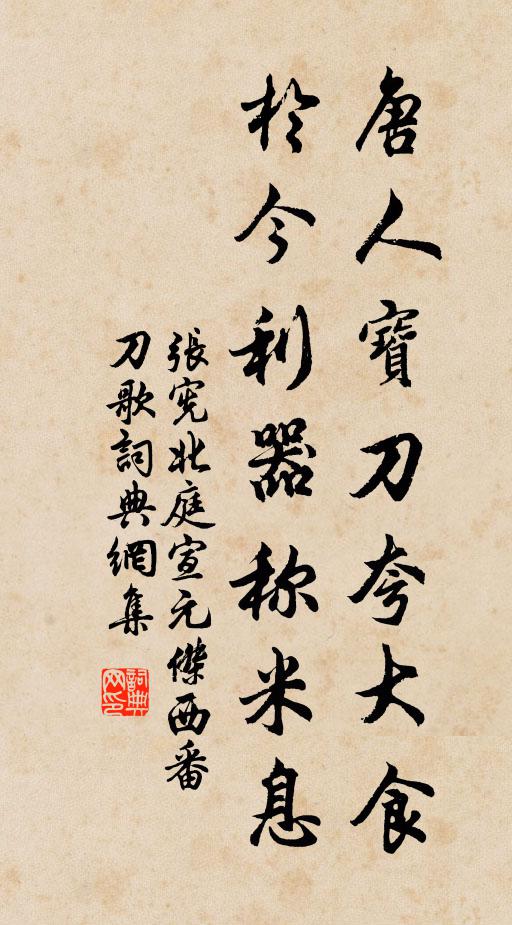 唐人寶刀夸大食
於今利器称米息
張憲北庭宣元傑西番
刀歌詞典網集
詞典网印